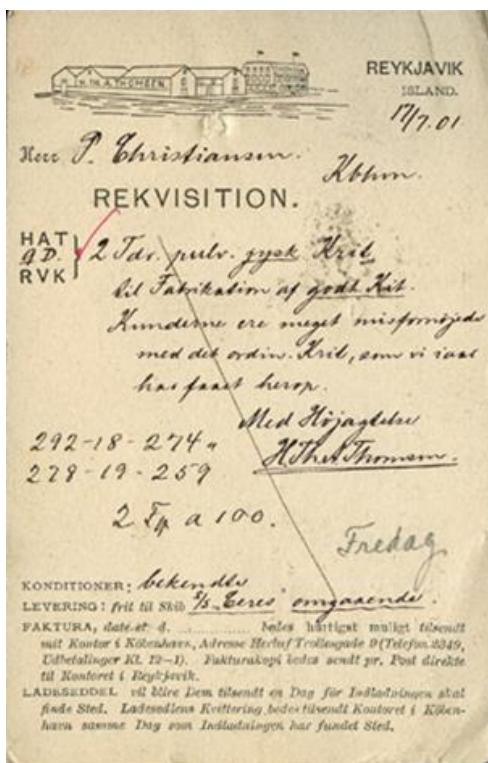 H. TH. A. THOMSEN.
REYKJAVIK
ISLAND.
17/7. 01
Herr P. Christiansen.
Kbhvn.
REKVISITION.
HAT
RVK
2 Tdr. pulv. jysk Krit
til Fabrikation af godt Kit.
Kunderne ere meget misfornøjede
med det ordin. Krit, som vi iaar
har faaet herop.
Med Højagtelse
H Th A Thomsen.
292-18-274 "
278-19-259
2 a 100.
Fredag
KONDITIONER: bekendte
LEVERING: frit til Skib S/S. "Ceres" omgaaende.
FAKTURA, date et d. ............ bedes hurtigst muligt tilsendt
mit Kontor i København, Adresse Herluf Trollesgade 9 (Telefon. 2349,
Udbetalinger Kl. 12-1). Fakturakopi bedes sendt pr. Post direkte
til Kontoret i Reykjavik.
LADESEDDEL vil blive Dem tilsendt en Dag før Indladningen skal
finde Sted. Ladesedlens Kvittering bedes tilsendt Kontoret i Køben-
havn samme Dag som Indladningen har fundet Sted.